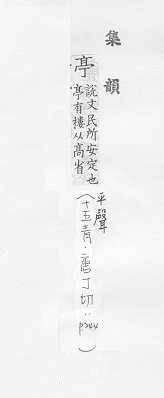 集韻
亭 說文民所安定也
亭有樓从高省
平聲
(十五青·唐丁切‥p244)